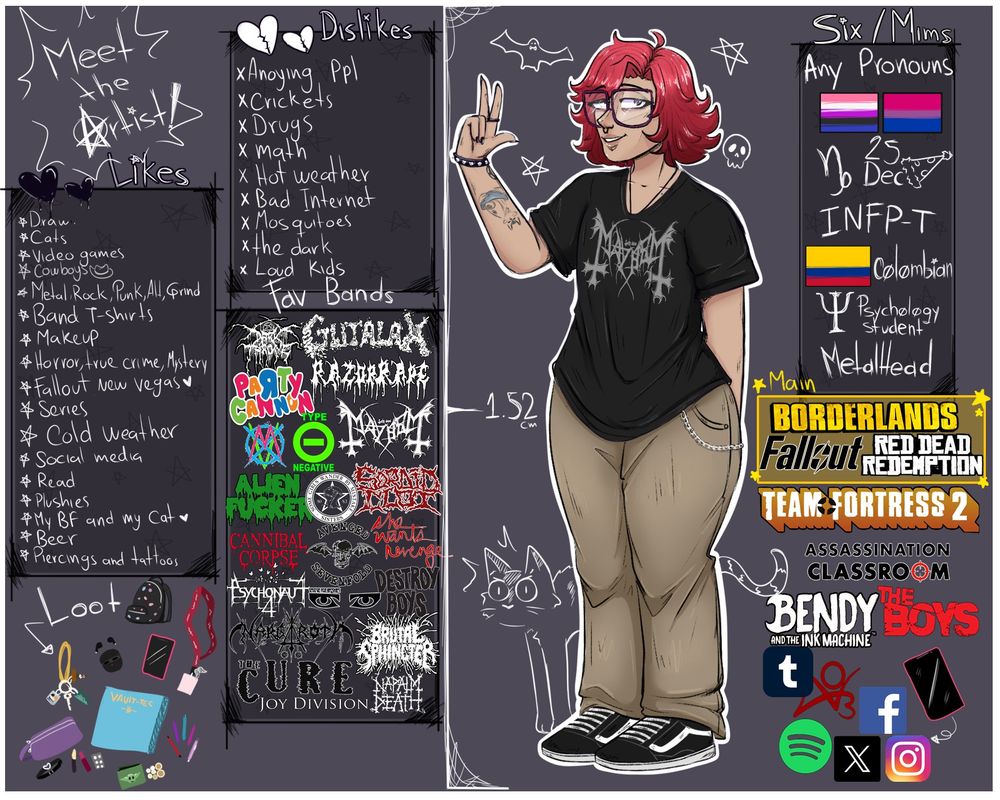 Meet
the
Artist!
Likes
Draw
Cats
Video games
Cowboys
Metal, Rock, Punk, Alt, Grind
Band T-shirts
Makeup
Horror, true crime, Mystery
Fallout new vegas
Series
Cold weather
Social media
Read
Plushies
My BF and my Cat
Beer
Piercings and tattoos
Loot
VAULT-TEC
Dislikes
x Anoying Ppl
x Crickets
x Drugs
x math
x Hot weather
x Bad Internet
x Mosquitoes
x the dark
x Loud kids
Fav Bands
DARK
THRONE
GUTALAX
RAZORRAPE
PARTY
CANNON
TYPE
NEGATIVE
MAYHEM
ALIEN
FUCKER
CANNIBAL
CORPSE
AVENGED
SEVENFOLD
She
wants
revenge
PSYCHONAUT
4
DESTROY
BOYS
BRUTAL
SPHINCTER
THE
CURE
NAPALM
DEATH
JOY DIVISION
MAYHEM
1.52
cm
Six / Mims
Any Pronouns
25
Dec
INFP-T
Colombian
Ψ Psychology
student
MetalHead
Main
BORDERLANDS
Fallout
RED DEAD
REDEMPTION
TEAM FORTRESS 2
ASSASSINATION
CLASSROOM
BENDY
AND THE INK MACHINE
THE
BOYS
t
f
X